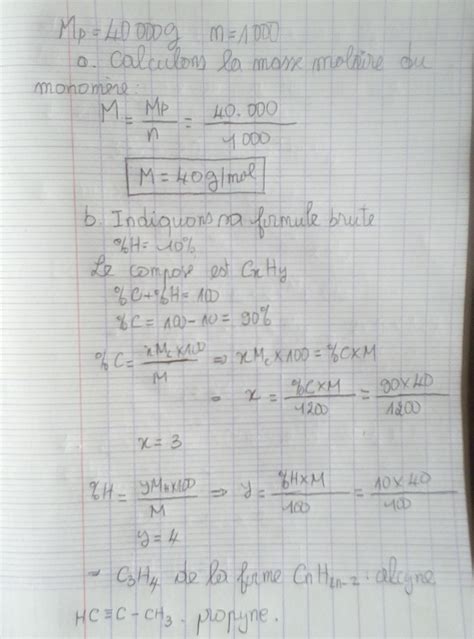 Mp = 40 000g   n = 1000
a. Calculons la masse molaire du
monomère :
M = Mp/n = 40.000/1000
M = 40g/mol
b. Indiquons sa formule brute
%H = 10%
Le composé est CxHy
%C + %H = 100
%C = 100 - 10 = 90%
%C = xMc×100/M ⇒ xMc×100 = %C×M
x = %C×M/1200 = 90×40/1200
x = 3
%H = yMH×100/M ⇒ y = %H×M/100 = 10×40/100
y = 4
- C3H4 de la forme CnH2n-2 : alcyne
HC≡C-CH3 . propyne.